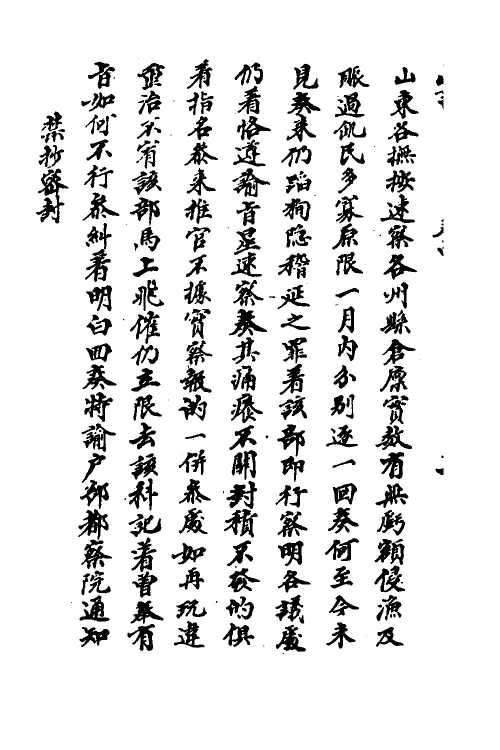 山東各撫按速察各州縣倉廩實数有無虧額侵漁及
賑過飢民多寡原限一月内分别逐一回奏何至今未
見奏来仍蹈狥隐稽延之罪着該部即行察明各議處
仍着恪遵諭旨星速察奏其痛癢不関封積不發的俱
着指名叅来推官不據實察報的一併叅處如再玩違
重治不宥該部馬上飛催仍立限去該科記着曾無有
旨如何不行叅糾着明白回奏特諭户部都察院通知
禁抄密封